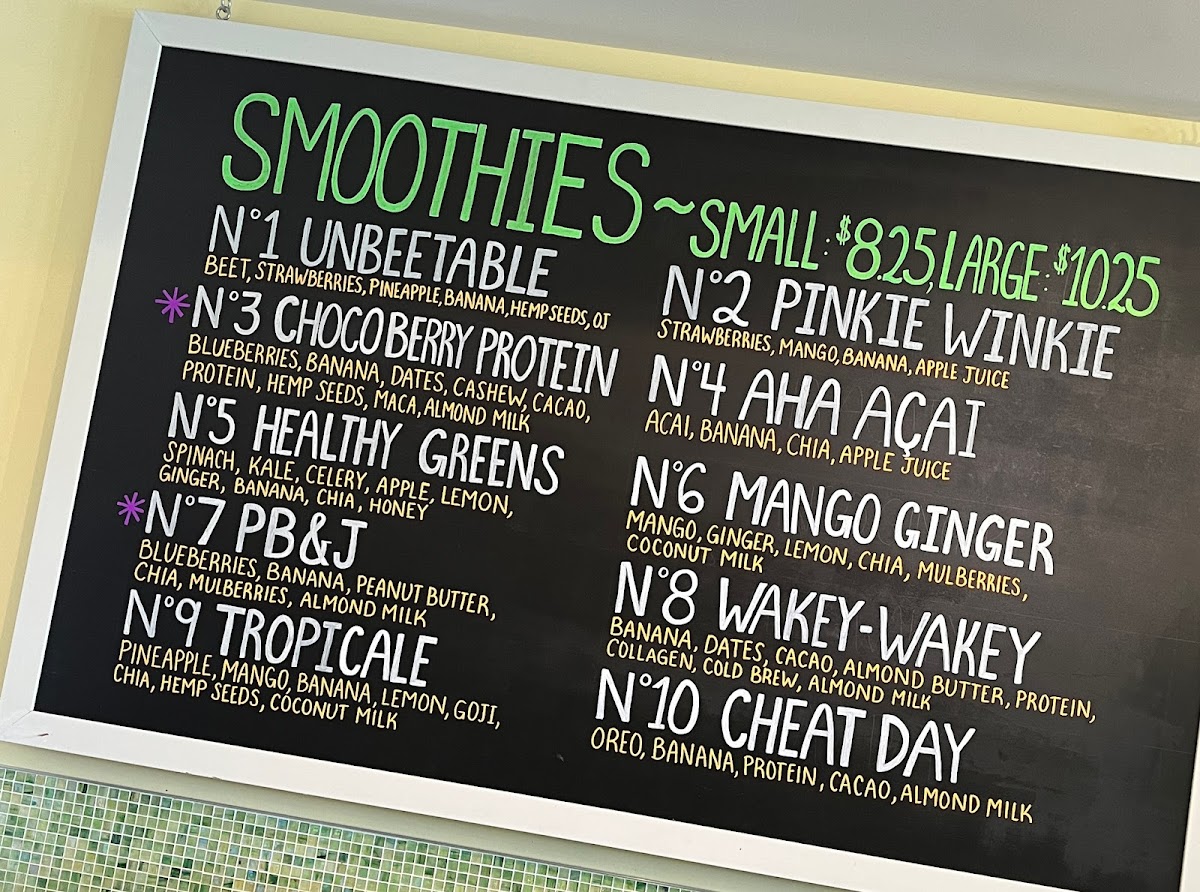 SMOOTHIES ~ SMALL: $8.25, LARGE: $10.25
N°1 UNBEETABLE
BEET, STRAWBERRIES, PINEAPPLE, BANANA, HEMP SEEDS, OJ
N°2 PINKIE WINKIE
STRAWBERRIES, MANGO, BANANA, APPLE JUICE
*N°3 CHOCOBERRY PROTEIN
BLUEBERRIES, BANANA, DATES, CASHEW, CACAO,
PROTEIN, HEMP SEEDS, MACA, ALMOND MILK
N°4 AHA AÇAI
ACAI, BANANA, CHIA, APPLE JUICE
N°5 HEALTHY GREENS
SPINACH, KALE, CELERY, APPLE, LEMON,
GINGER, BANANA, CHIA, HONEY
N°6 MANGO GINGER
MANGO, GINGER, LEMON, CHIA, MULBERRIES,
COCONUT MILK
*N°7 PB&J
BLUEBERRIES, BANANA, PEANUT BUTTER,
CHIA, MULBERRIES, ALMOND MILK
N°8 WAKEY-WAKEY
BANANA, DATES, CACAO, ALMOND BUTTER, PROTEIN,
COLLAGEN, COLD BREW, ALMOND MILK
N°9 TROPICALE
PINEAPPLE, MANGO, BANANA, LEMON, GOJI,
CHIA, HEMP SEEDS, COCONUT MILK
N°10 CHEAT DAY
OREO, BANANA, PROTEIN, CACAO, ALMOND MILK